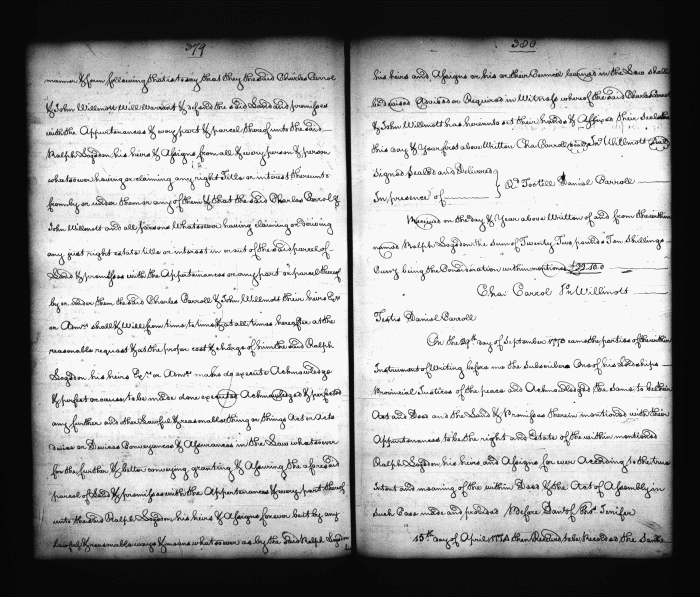 379
manner & form following that is to say that they the said Charles Carrol
& John Willmott Will Warrant & defend the said Land and premisses
with the Appurtenances & every part & parcel thereof unto the said
Ralph Logsdon his heirs & Assigns from all & every person & persons
whatsoever having or claiming any right Title or interest thereunto
from by or under them or any of them & that the said Charles Carrol &
John Willmott and all persons Whatsoever having claiming or deriving
any right estate title or interest in or out of the said parcel of
Land & premisses with the Appurtenances or any part or parcel thereof
by or under them the said Charles Carroll & John Willmott their heirs Exrs
or Admrs shall & Will from time to time & at all times hereafter at the
reasonable request & at the proper cost & charge of him the said Ralph
Logsdon his heirs Exrs or Admrs make do execute Acknowledge
& perfect or cause to be made done executed Acknowledged & perfected
any further and other Lawful & reasonable thing or things Act or Acts
devise or Devices Conveyances & Assurances in the Law whatsoever
for the further & better conveying granting & Assuring the aforesaid
parcel of Land & premisses with the Appurtenances & every part thereof
unto the said Ralph Logsdon his heirs & Assigns forever be it by any
Lawful & reasonable ways & means whatsoever as by the said Ralph Logsdon
380
his heirs and Assigns or his or their Council learned in the Law shall
be Advised or Required in Witness whereof the said Charles Carrol
& John Willmott has hereunto set their hands & Affixed their Seals
this day & Year first above Written Cha. Carroll (seal) Jn Willmott (seal)
Signed Sealed and Delivered
In presence of
Tootell Daniel Carroll
Received on the day & Year above Written of and from the within
named Ralph Logsdon the Sum of Twenty Two pounds Ten Shillings
Curry being the Consideration within mentioned £22.10.0
Cha Carrol Jn Willmott
Testis Daniel Carroll
On the 29th day of September 1770 came the parties of the within
Instrument of Writing before me the Subscriber One of his Lordships
Provincial Justices of the peace and Acknowledged the same to be their
Act and Deed and the Land & Premisses therein mentioned with their
Appurtenances to be the right and Estate of the within mentioned
Ralph Logsdon his heirs and Assigns for ever According to the true
Intent and meaning of the within Deed & the Act of Assembly in
such Case made and provided Before Danl of Thos Jenifer
15th day of April 1771 then Received to be Recorded the Same